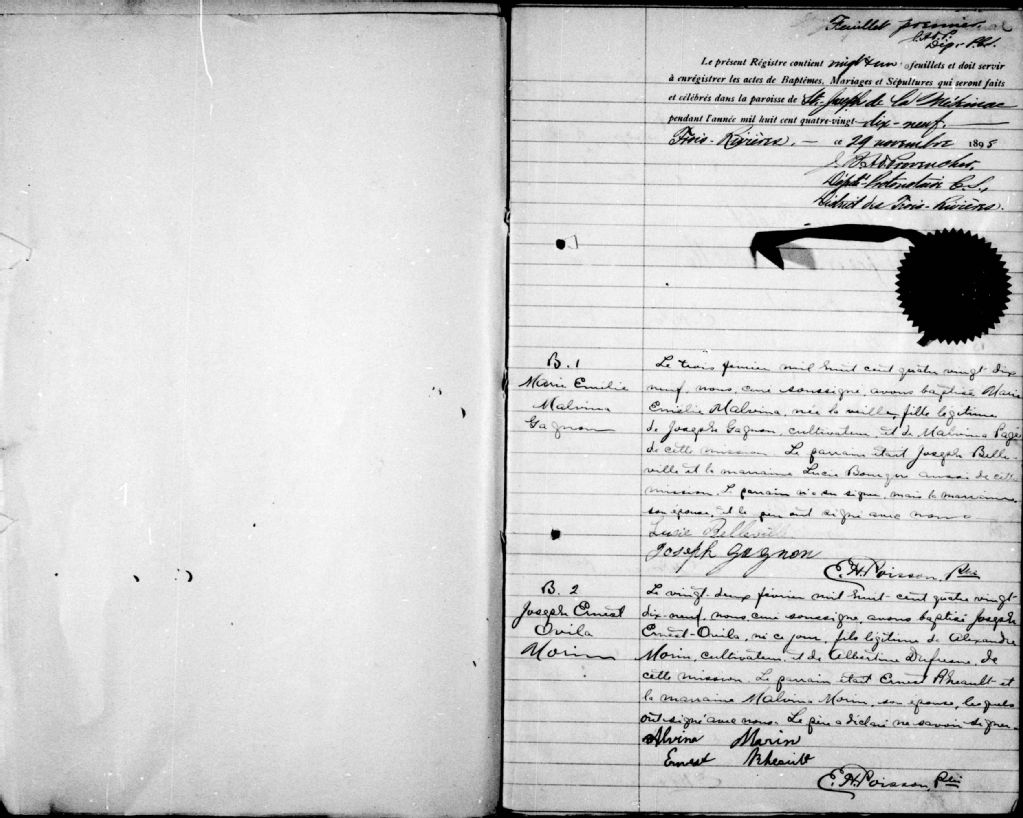 Feuillet premier.
Dép. P.C.S.
Le présent Régistre contient vingt & un feuillets et doit servir
à enrégistrer les actes de Baptêmes, Mariages et Sépultures qui seront faits
et célébrés dans la paroisse de St. Joseph de la Mékinac
pendant l'année mil huit cent quatre-vingt-dix-neuf.
Trois-Rivières. — ce 29 novembre 1898
Provencher,
Député-Protonotaire C.S.,
District des Trois-Rivières.
B. 1
Marie Emélie
Malvina
Gagnon
Le trois février mil huit cent quatre vingt dix
neuf, nous, curé soussigné, avons baptisé Marie
Emélie Malvina, née la veille, fille légitime
de Joseph Gagnon, cultivateur, et de Malvina Pagé
de cette mission. Le parrain était Joseph Belle-
ville et la marraine Lucie Bourger aussi de cette
mission. Le parrain n'a su signer, mais la marraine,
son épouse, et le père ont signé avec nous.
Lusie Belleville
Joseph Gagnon
E. H. Poisson, Ptre
B. 2
Joseph Ernest
Ovila
Morin
Le vingt-deux février mil huit-cent quatre vingt
dix-neuf, nous curé soussigné, avons baptisé Joseph
Ernest-Ovila, né ce jour, fils légitime de Alexandre
Morin, cultivateur, et de Albertine Dufresne, de
cette mission. Le parrain était Ernest Rheault et
la marraine Malvina Morin, son épouse, lesquels
ont signé avec nous. Le père a déclaré ne savoir signer.
Alvina Morin
Ernest Rheault
E. H. Poisson, Ptre